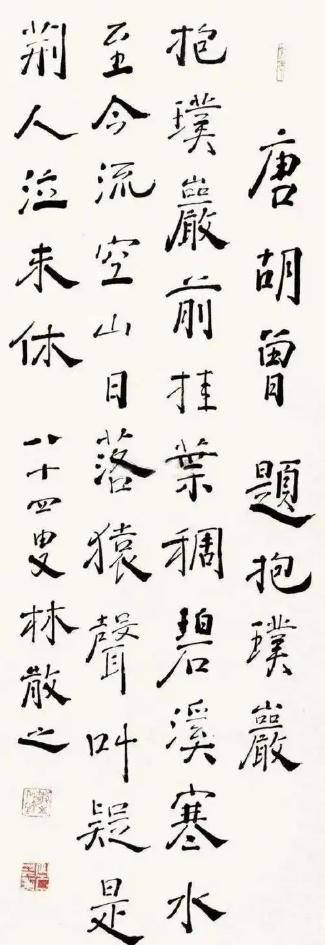 唐胡曾題抱璞巖
抱璞巖前桂葉稠碧溪寒水
至今流空山日落猿聲叫疑是
荊人泣未休 八十四叟林散之